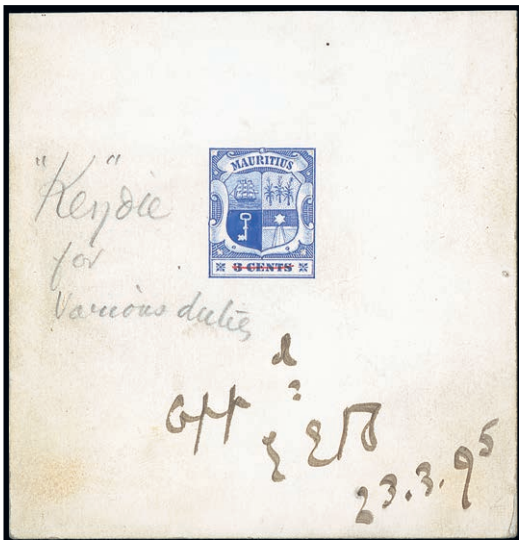 MAURITIUS
3 CENTS
"Key" die
for
Various duties
23.3.95